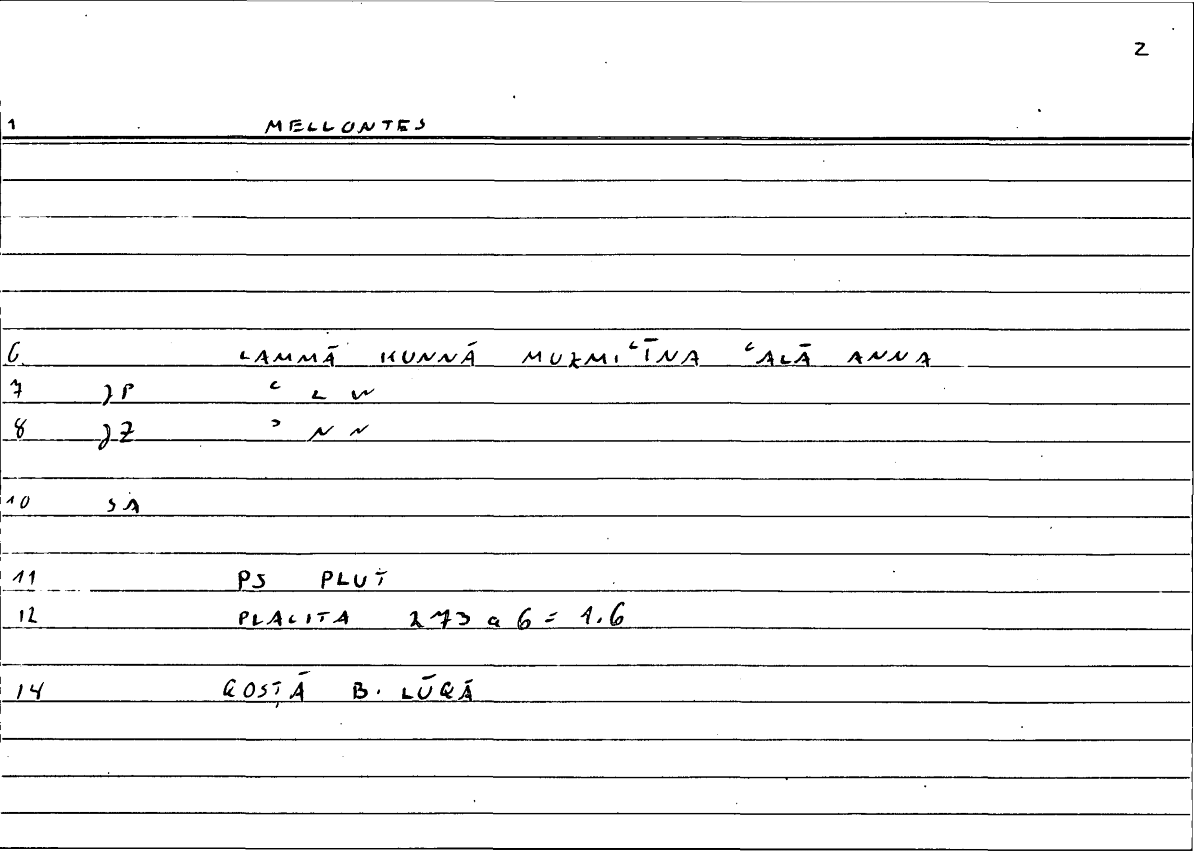 2
1 MELLONTES
6 LAMMĀ KUNNĀ MUZMIʿĪNA ʿALĀ ANNA
7 JP ʿ L W
8 JZ ʾ N N
10 SA
11 PS PLUT
12 PLACITA 273 a 6 = 1.6
14 QOSṬĀ B. LŪQĀ